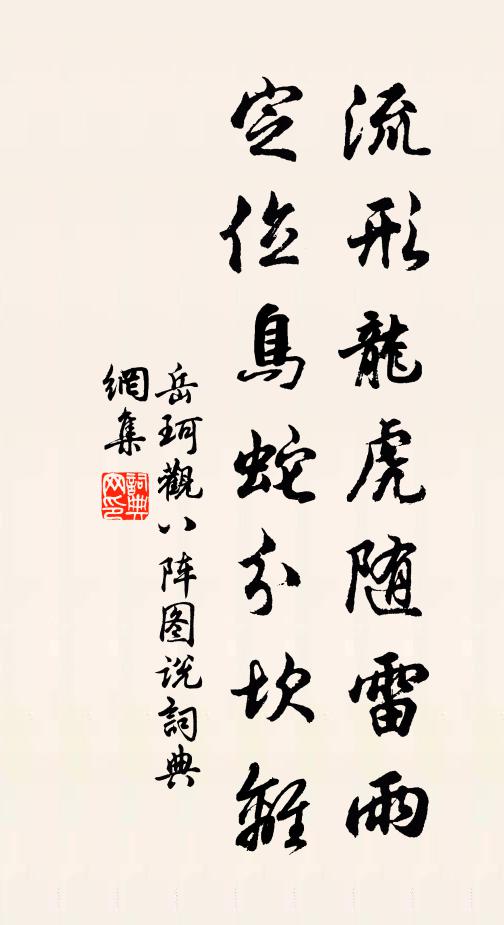 流形龍虎随雷雨
定位鳥蛇分坎離
岳珂觀八阵图说詞典
網集
詞典
网印